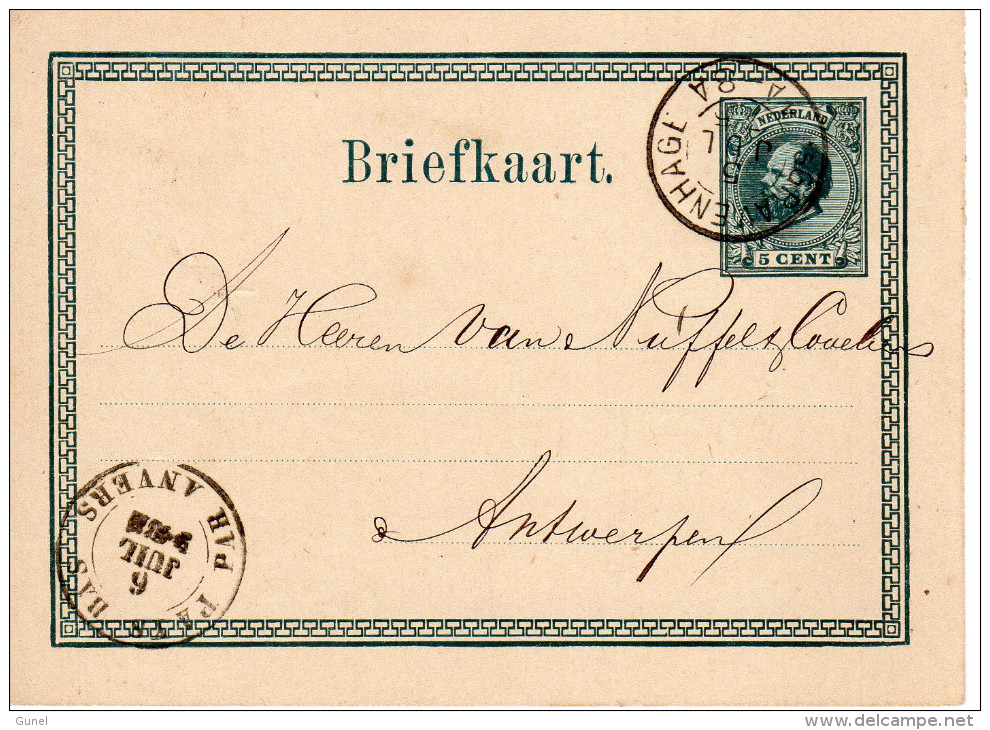 Briefkaart.
NEDERLAND
5 CENT
'SGRAVENHAGE
8A
JUL
De Heeren van Nuffel & Coveliers
Antwerpen
PAYS BAS PAR ANVERS
6
JUIL
Gunel
www.delcampe.net